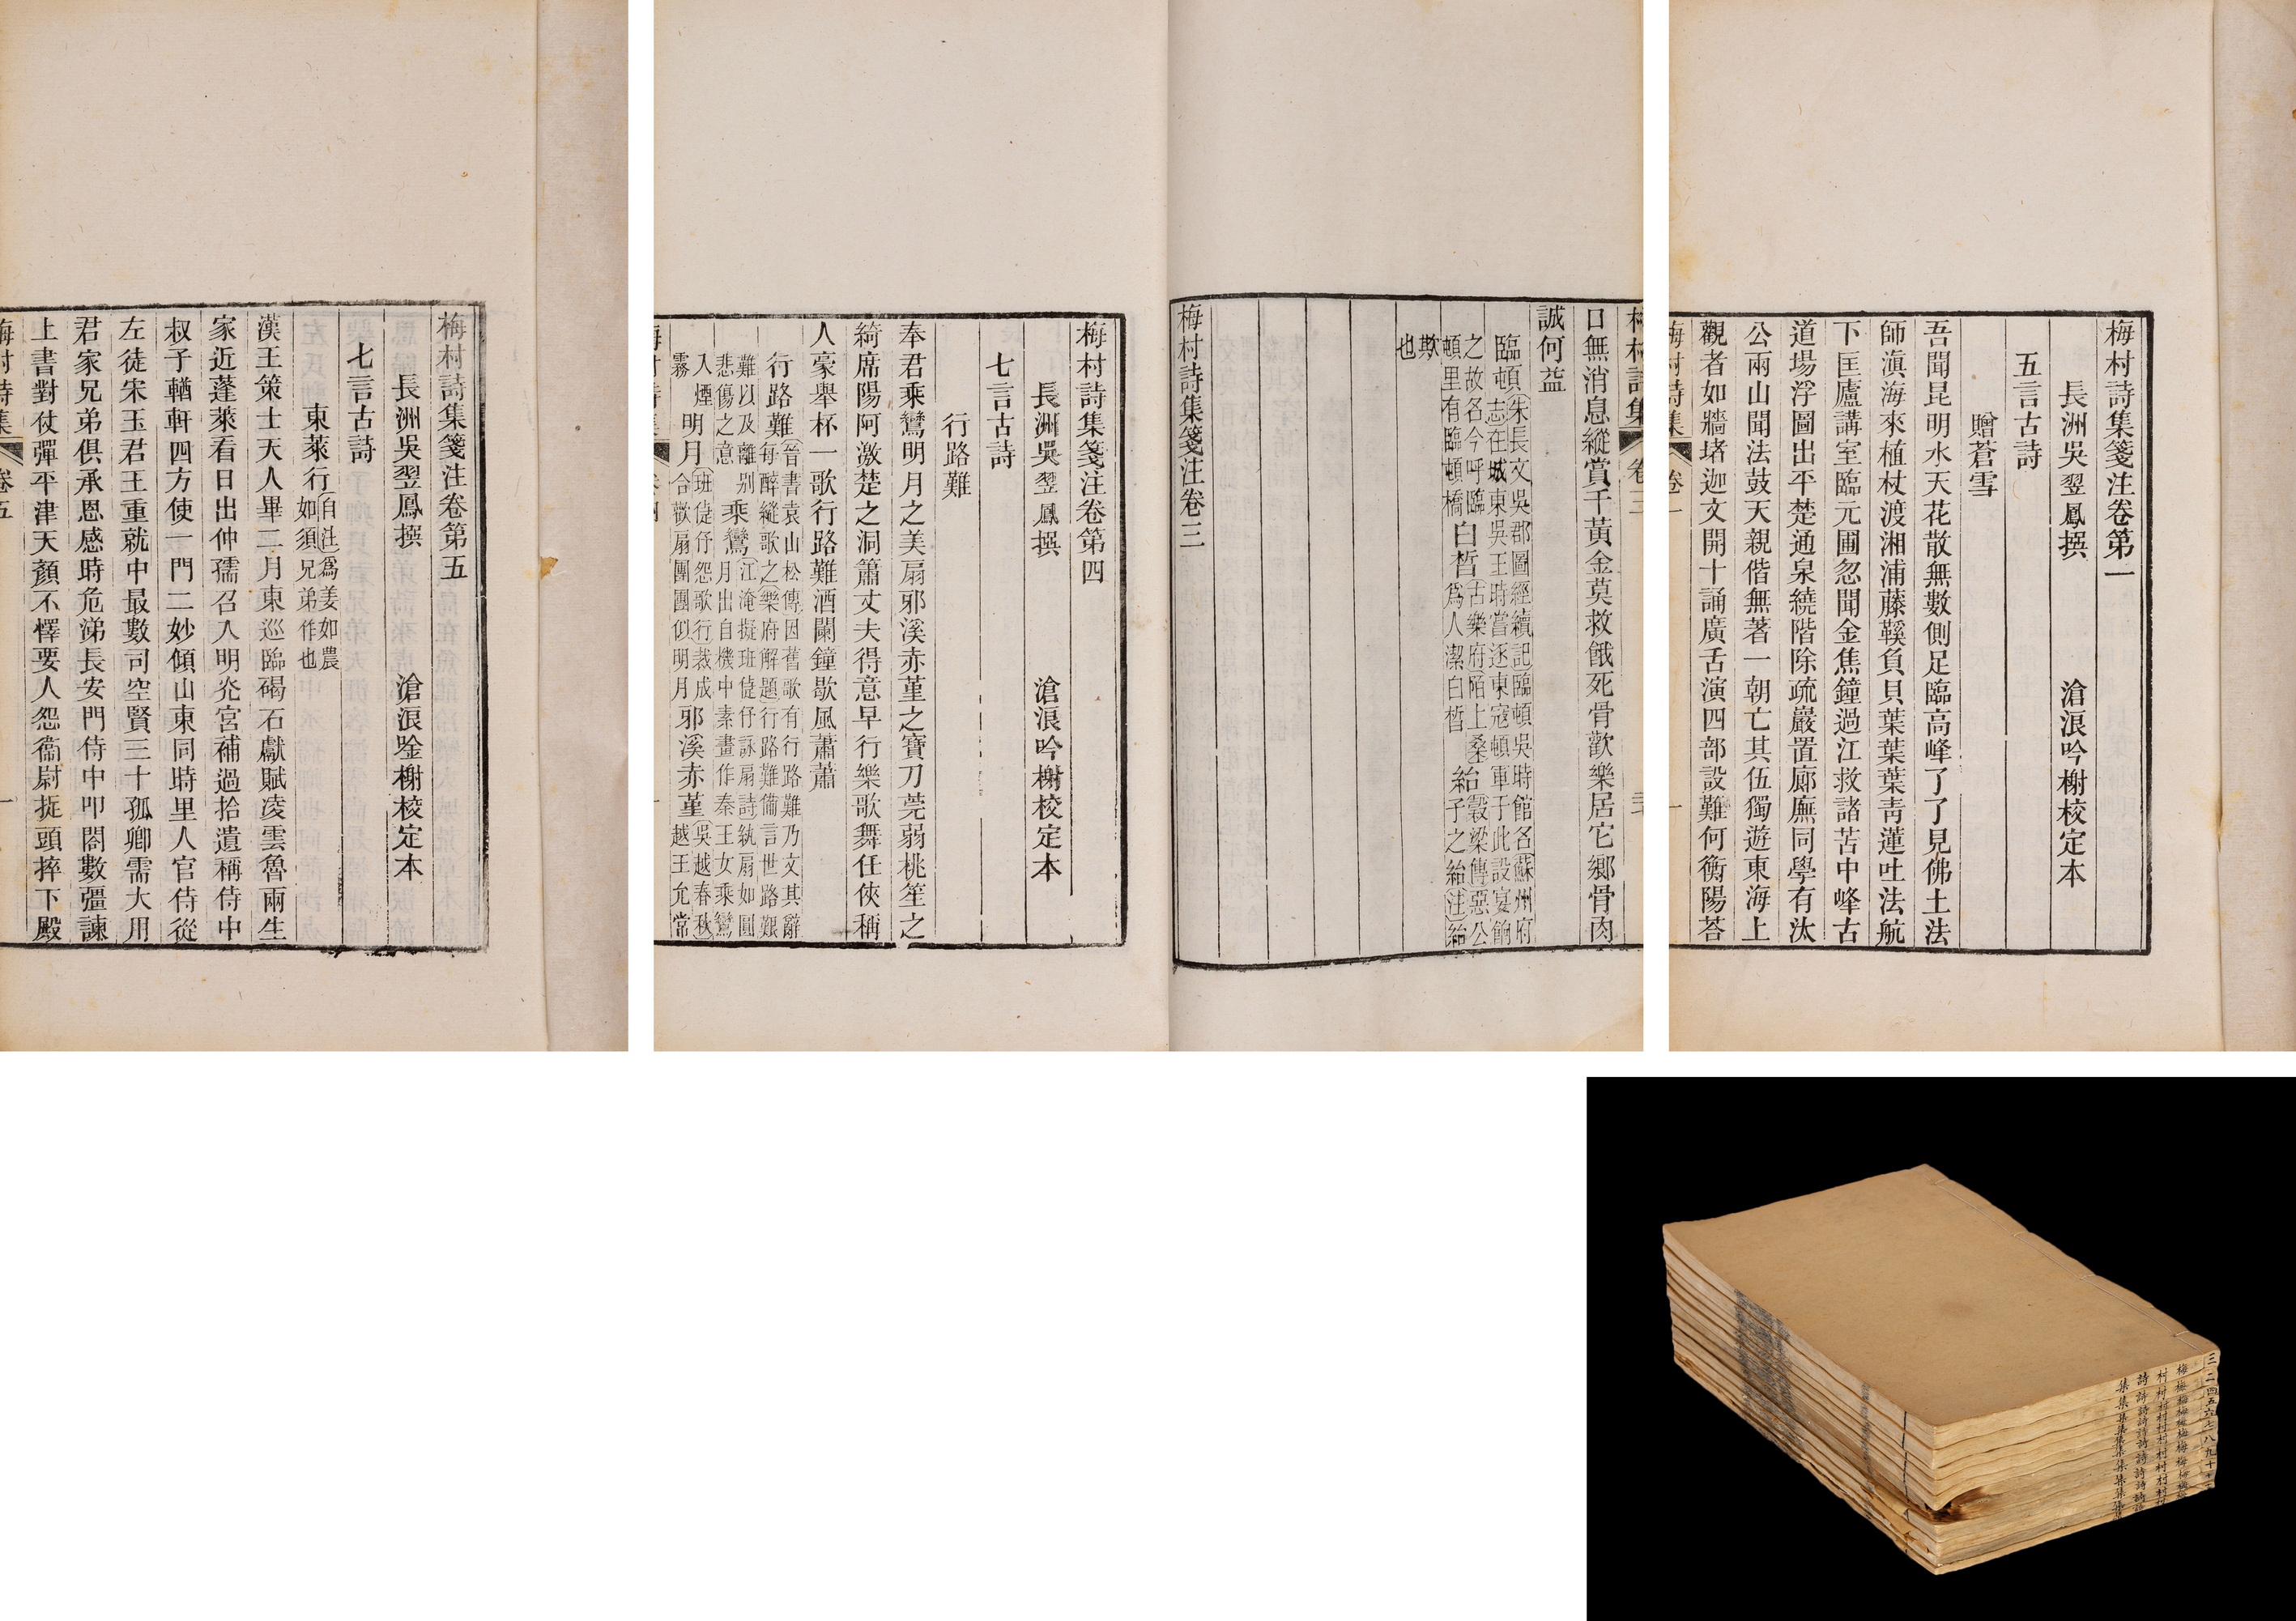 梅村詩集箋注卷第一
長洲吳翌鳳撰　滄浪吟榭校定本
五言古詩
贈蒼雪
吾聞昆明水天花散無數側足臨高峰了了見佛土法
師滇海來植杖渡湘浦藤鞵負貝葉葉葉靑蓮吐法航
下匡廬講室臨元圃忽聞金焦鐘過江救諸苦中峰古
道場浮圖出平楚通泉繞階除疏巖置廊廡同學有汰
公兩山聞法鼓天親偕無著一朝亡其伍獨遊東海上
觀者如牆堵迦文開十誦廣舌演四部設難何衡陽荅
梅村詩集　卷一　一
梅村詩集　卷三
日無消息縱賞千黃金莫救餓死骨歡樂居它鄉骨肉
誠何益
臨頓朱長文吳郡圖經續記臨頓吳時館名蘇州府
志在城東吳王時嘗逐東寇頓軍于此設宴餉
之故名今呼臨
頓里有臨頓橋
白晳古樂府陌上桑
爲人潔白晳
紿穀梁傳惡公
子之紿注紿
欺
也
梅村詩集箋注卷三
梅村詩集箋注卷第四
長洲吳翌鳳撰　滄浪吟榭校定本
七言古詩
行路難
奉君乘鸞明月之美扇邪溪赤堇之寶刀莞弱桃笙之
綺席陽阿激楚之洞簫丈夫得意早行樂歌舞任俠稱
人豪舉杯一歌行路難酒闌鐘歇風蕭蕭
行路難晉書袁山松傳因舊歌有行路難乃文其辭
每醉縱歌之樂府解題行路難備言世路艱
難以及離别
悲傷之意
乘鸞江淹擬班倢伃詠扇詩紈扇如圓
月出自機中素畫作秦王女乘鸞
入煙
霧
明月班倢伃怨歌行裁成
合歡扇團團似明月
邪溪赤堇吳越春秋
越王允常
梅村詩集　卷四　一
梅村詩集箋注卷第五
長洲吳翌鳳撰　滄浪唫榭校定本
七言古詩
東萊行自注爲姜如農
如須兄弟作也
漢王策士天人畢二月東巡臨碣石獻賦凌雲魯兩生
家近蓬萊看日出仲孺召入明光宮補過拾遺稱侍中
叔子輶軒四方使一門二妙傾山東同時里人官侍從
左徒宋玉君王重就中最數司空賢三十孤卿需大用
君家兄弟俱承恩感時危涕長安門侍中叩閤數彊諫
上書對仗彈平津天顏不懌要人怨衞尉捉頭捽下殿
梅村詩集　卷五　一
三二四五六七八九十
梅村詩集